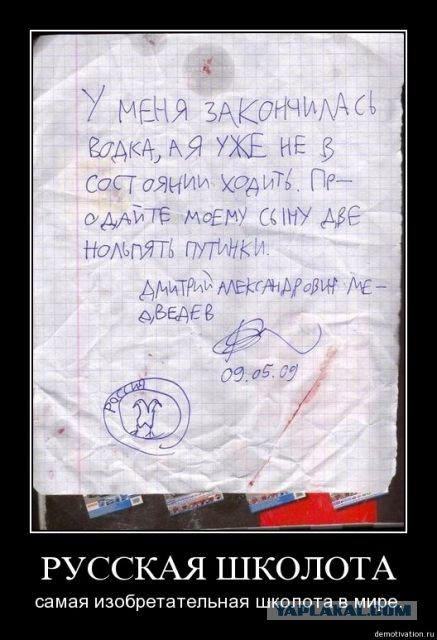 У МЕНЯ ЗАКОНЧИЛАСЬ
ВОДКА, А Я УЖЕ НЕ В
СОСТОЯНИИ ХОДИТЬ. ПР-
ОДАЙТЕ МОЕМУ СЫНУ ДВЕ
НОЛЬПЯТЬ ПУТИНКИ.
ДМИТРИЙ АЛЕКСАНДРОВИЧ МЕ-
ДВЕДЕВ
09.05.09
РОССИЯ
РУССКАЯ ШКОЛОТА
самая изобретательная школота в мире.
YAPLAKAL.COM
demotivation.ru